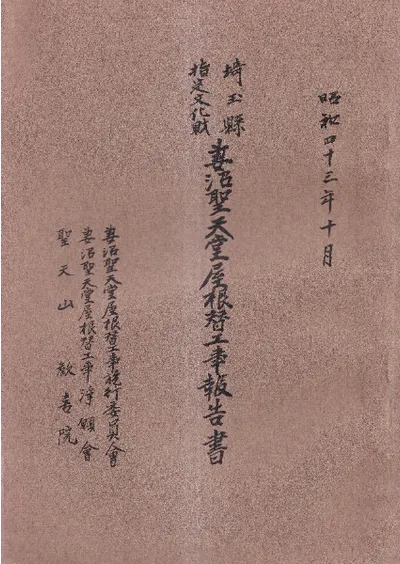 昭和四十三年十月
埼玉縣
指定文化財
妻沼聖天堂屋根替工事報告書
妻沼聖天堂屋根替工事施行委員會
妻沼聖天堂屋根替工事浄願會
聖天山歓喜院